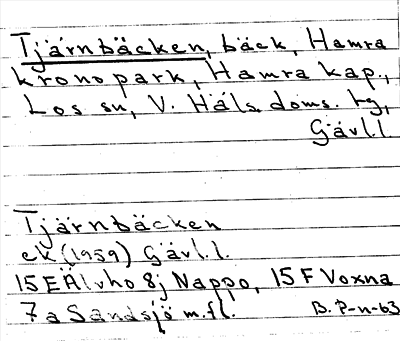 Tjärnbäcken, bäck, Hamra
kronopark, Hamra kap.,
Los sn, V. Häls. doms. tg,
Gävl.l
Tjärnbäcken
ek (1959) Gävl.l.
15E Älvho 8j Nappo, 15F Voxna
7a Sandsjö m.fl.
B. P-n-63